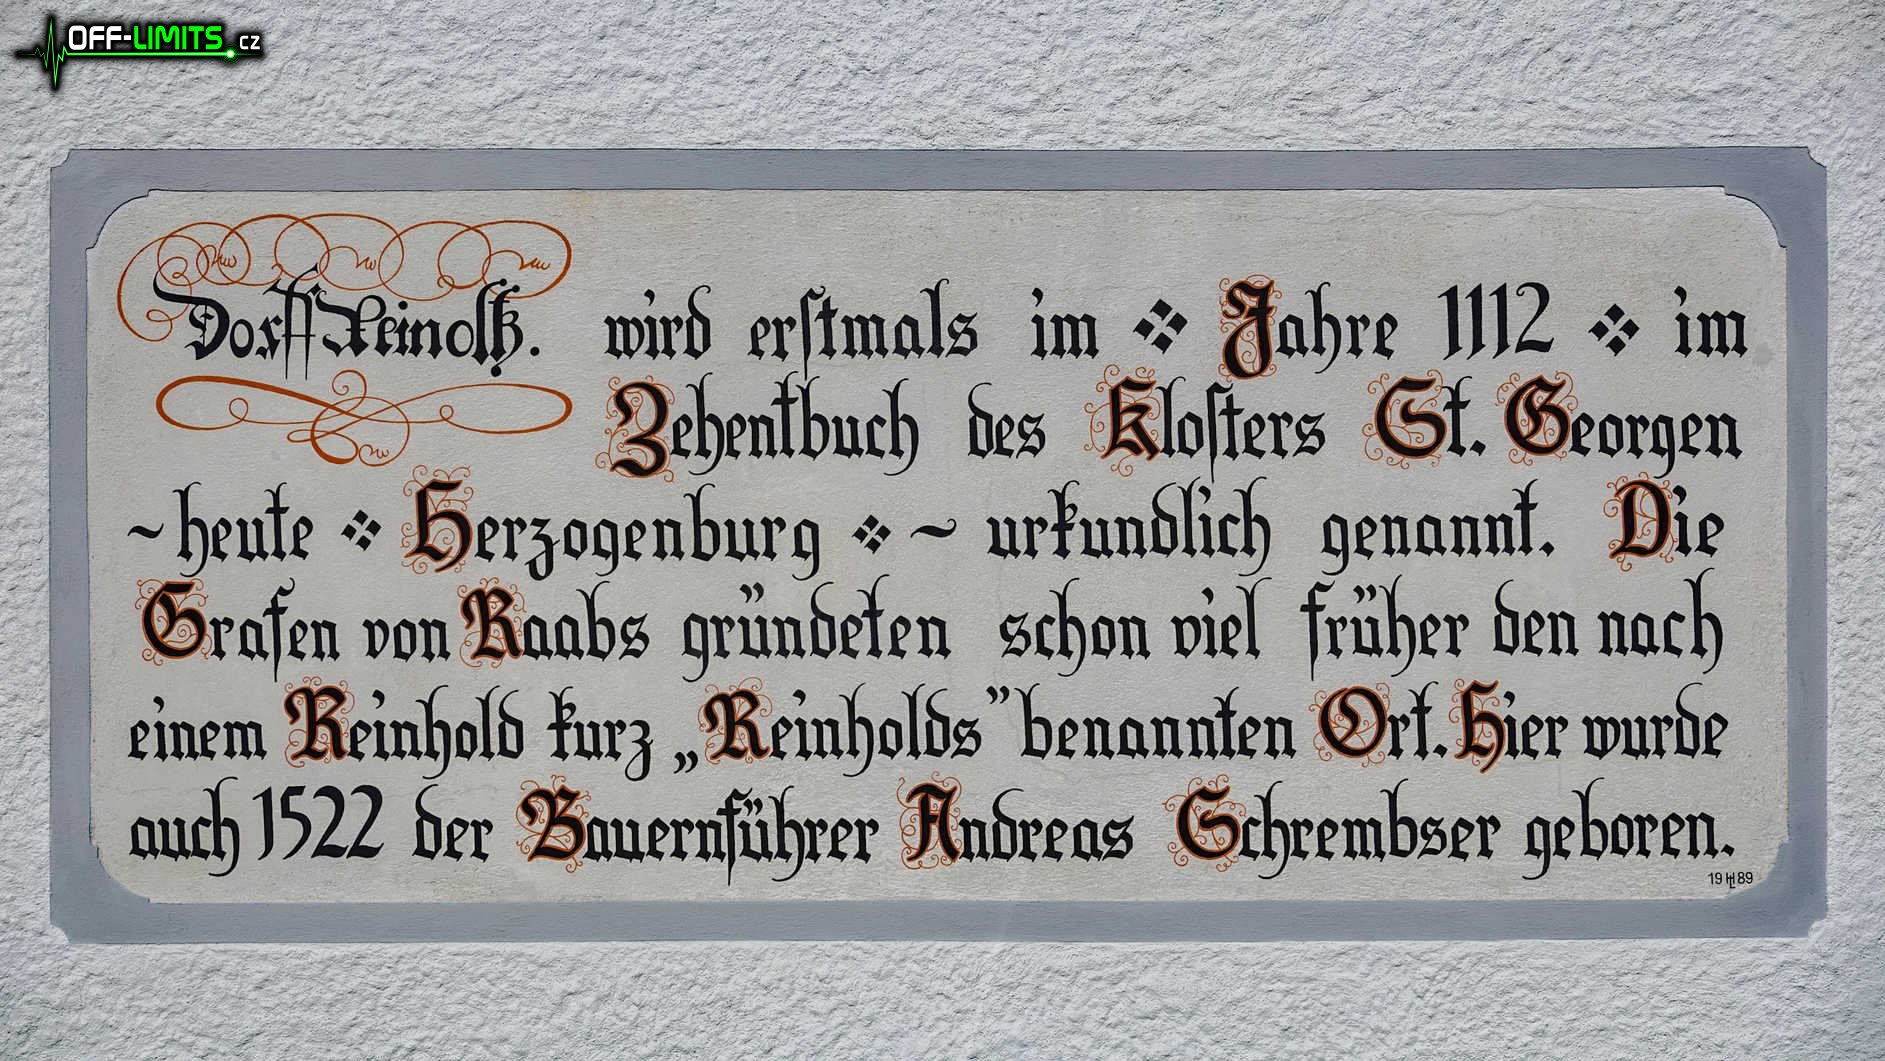 OFF-LIMITS.CZ
Dorff Reinoltz. wird erstmals im Jahre 1112 im
Zehentbuch des Klosters St. Georgen
~ heute Herzogenburg ~ urkundlich genannt. Die
Grafen von Raabs gründeten schon viel früher den nach
einem Reinhold kurz „Reinholds” benannten Ort. Hier wurde
auch 1522 der Bauernführer Andreas Schrembser geboren.
19 HL 89